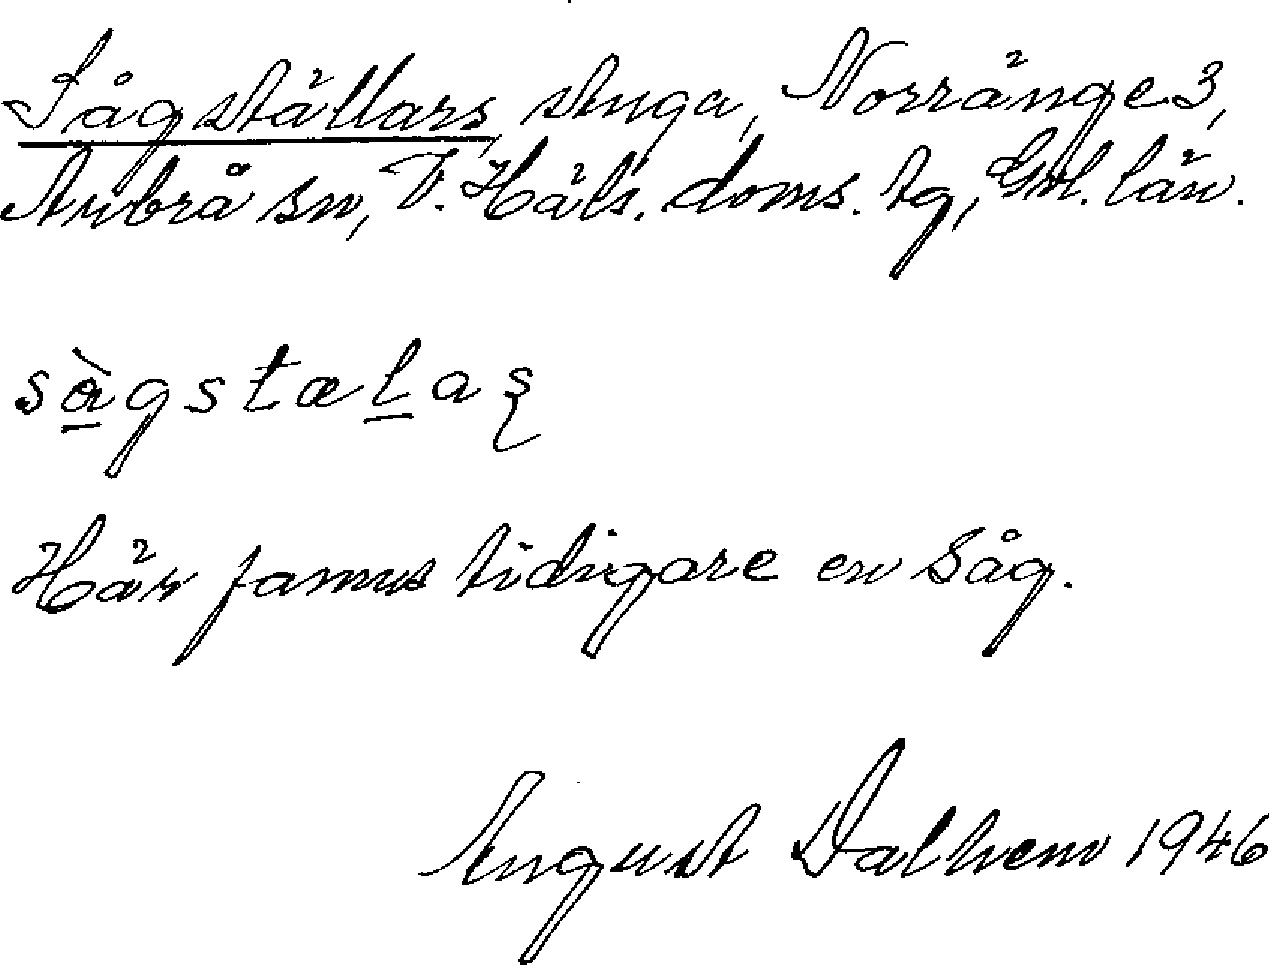 Sågställars stuga, Norränge 3,
Arbrå sn, V. Häls. doms. tg, Gvl. län.
sàgstælaş
Här fanns tidigare en såg.
August Dalhem 1946